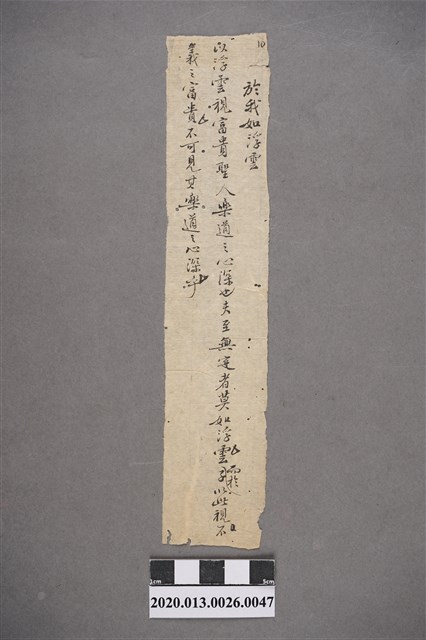 10
於我如浮雲
以浮雲視富貴聖人樂道之心深也夫至無定者莫如浮雲而於以此視不
義之富貴不可見其樂道之心深乎
2cm
5cm
2020.013.0026.0047